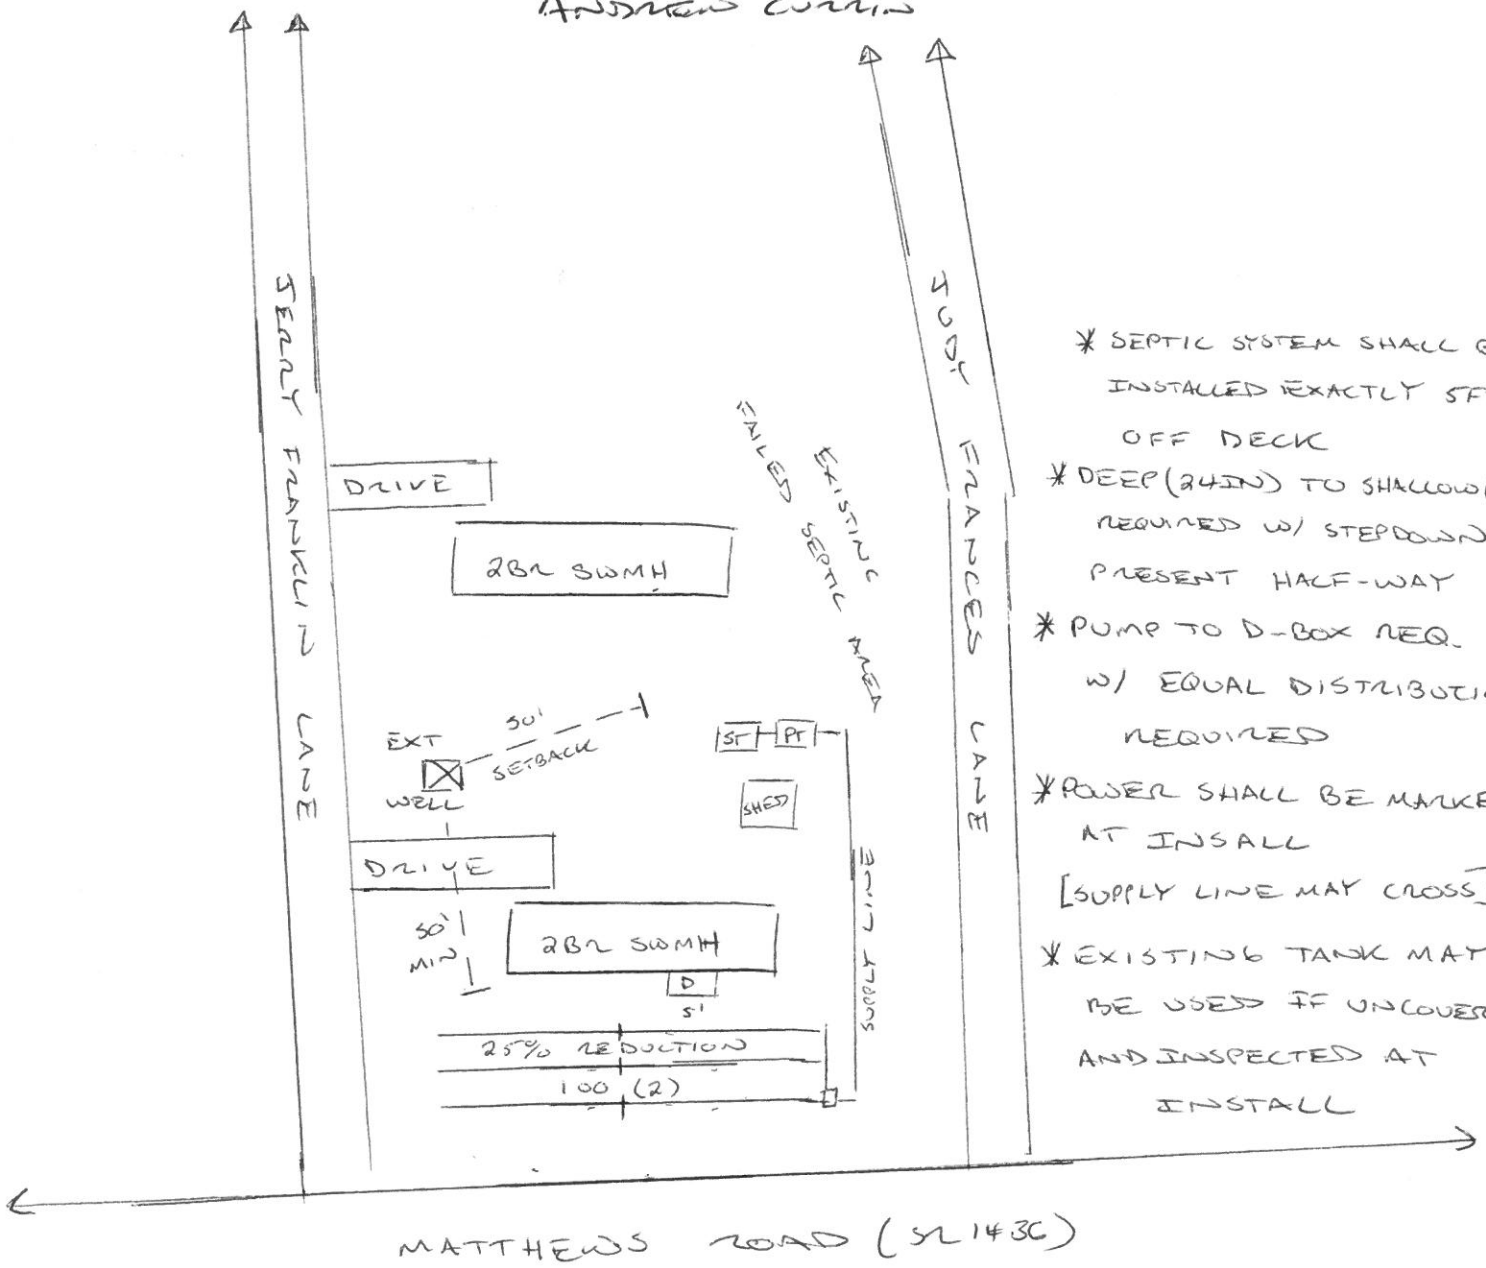 ANDREW CURRIN
JERRY FRANKLIN LANE
JUDY FRANCES LANE
DRIVE
2BR SWMH
EXISTING
FAILED SEPTIC AREA
EXT
WELL
50'
SETBACK
ST
PT
SHED
DRIVE
50'
MIN
2BR SWMH
D
5'
SUPPLY LINE
25% REDUCTION
100 (2)
* SEPTIC SYSTEM SHALL
INSTALLED EXACTLY 5F
OFF DECK
* DEEP (24IN) TO SHALLOW
REQUIRED W/ STEPDOWN
PRESENT HALF-WAY
* PUMP TO D-BOX REQ.
W/ EQUAL DISTRIBUTI
REQUIRED
* POWER SHALL BE MARKE
AT INSALL
[SUPPLY LINE MAY CROSS]
* EXISTING TANK MAY
BE USED IF UNCOVER
AND INSPECTED AT
INSTALL
MATTHEWS ROAD (SR 1436)